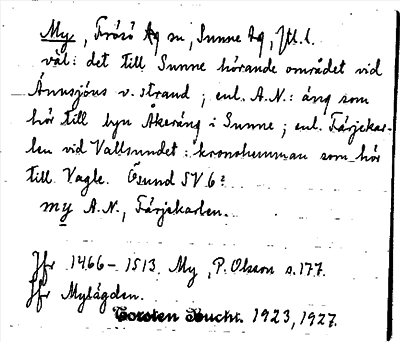 My, Frösö sn, Sunne tg, Jtl. l.
väl: det till Sunne hörande området vid
Ännsjöns v. strand; enl. A.N.: äng som
hör till byn Åkeräng i Sunne; enl. Färjekar-
len vid Vallsundet: kronohemman som hör
till Vagle. Ösund SV 6?
my A.N., Färjekarlen.
Jfr 1466–1513 My, P. Olsson s. 177.
Jfr Mylägden.
Torsten Bucht. 1923, 1927.